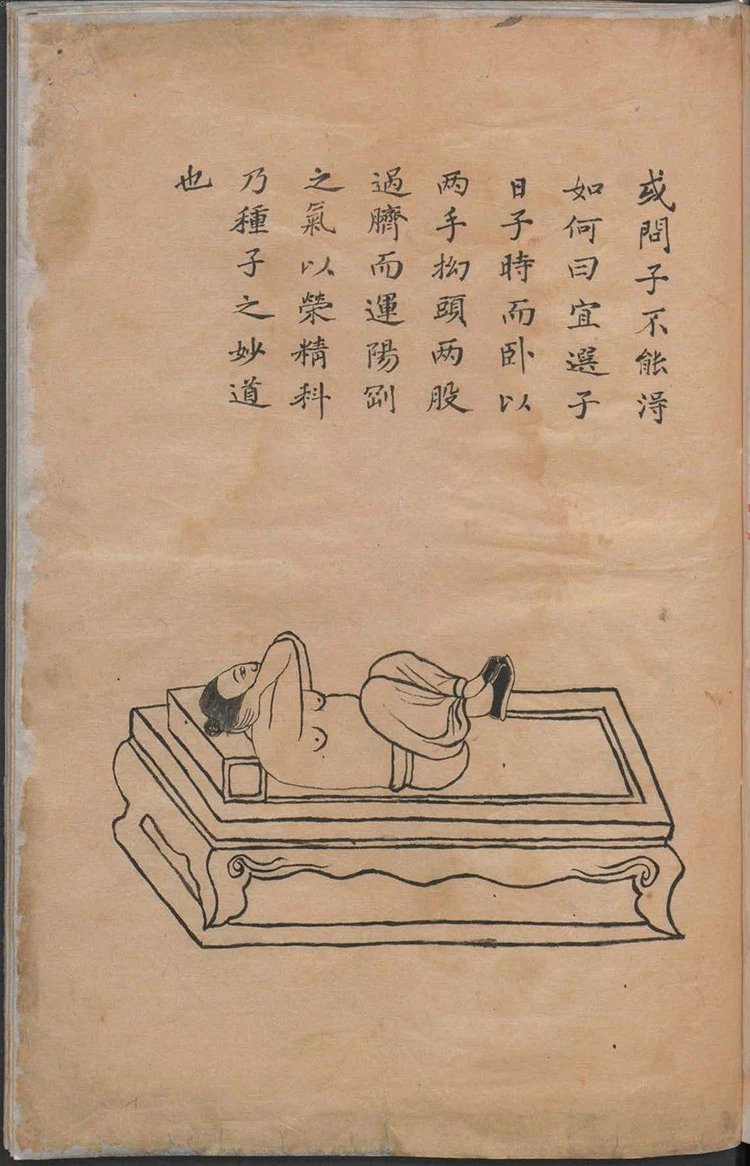 或問子不能淂
如何曰宜選子
日子時而卧以
两手抝頭两股
過臍而運陽剛
之氣以榮精科
乃種子之妙道
也